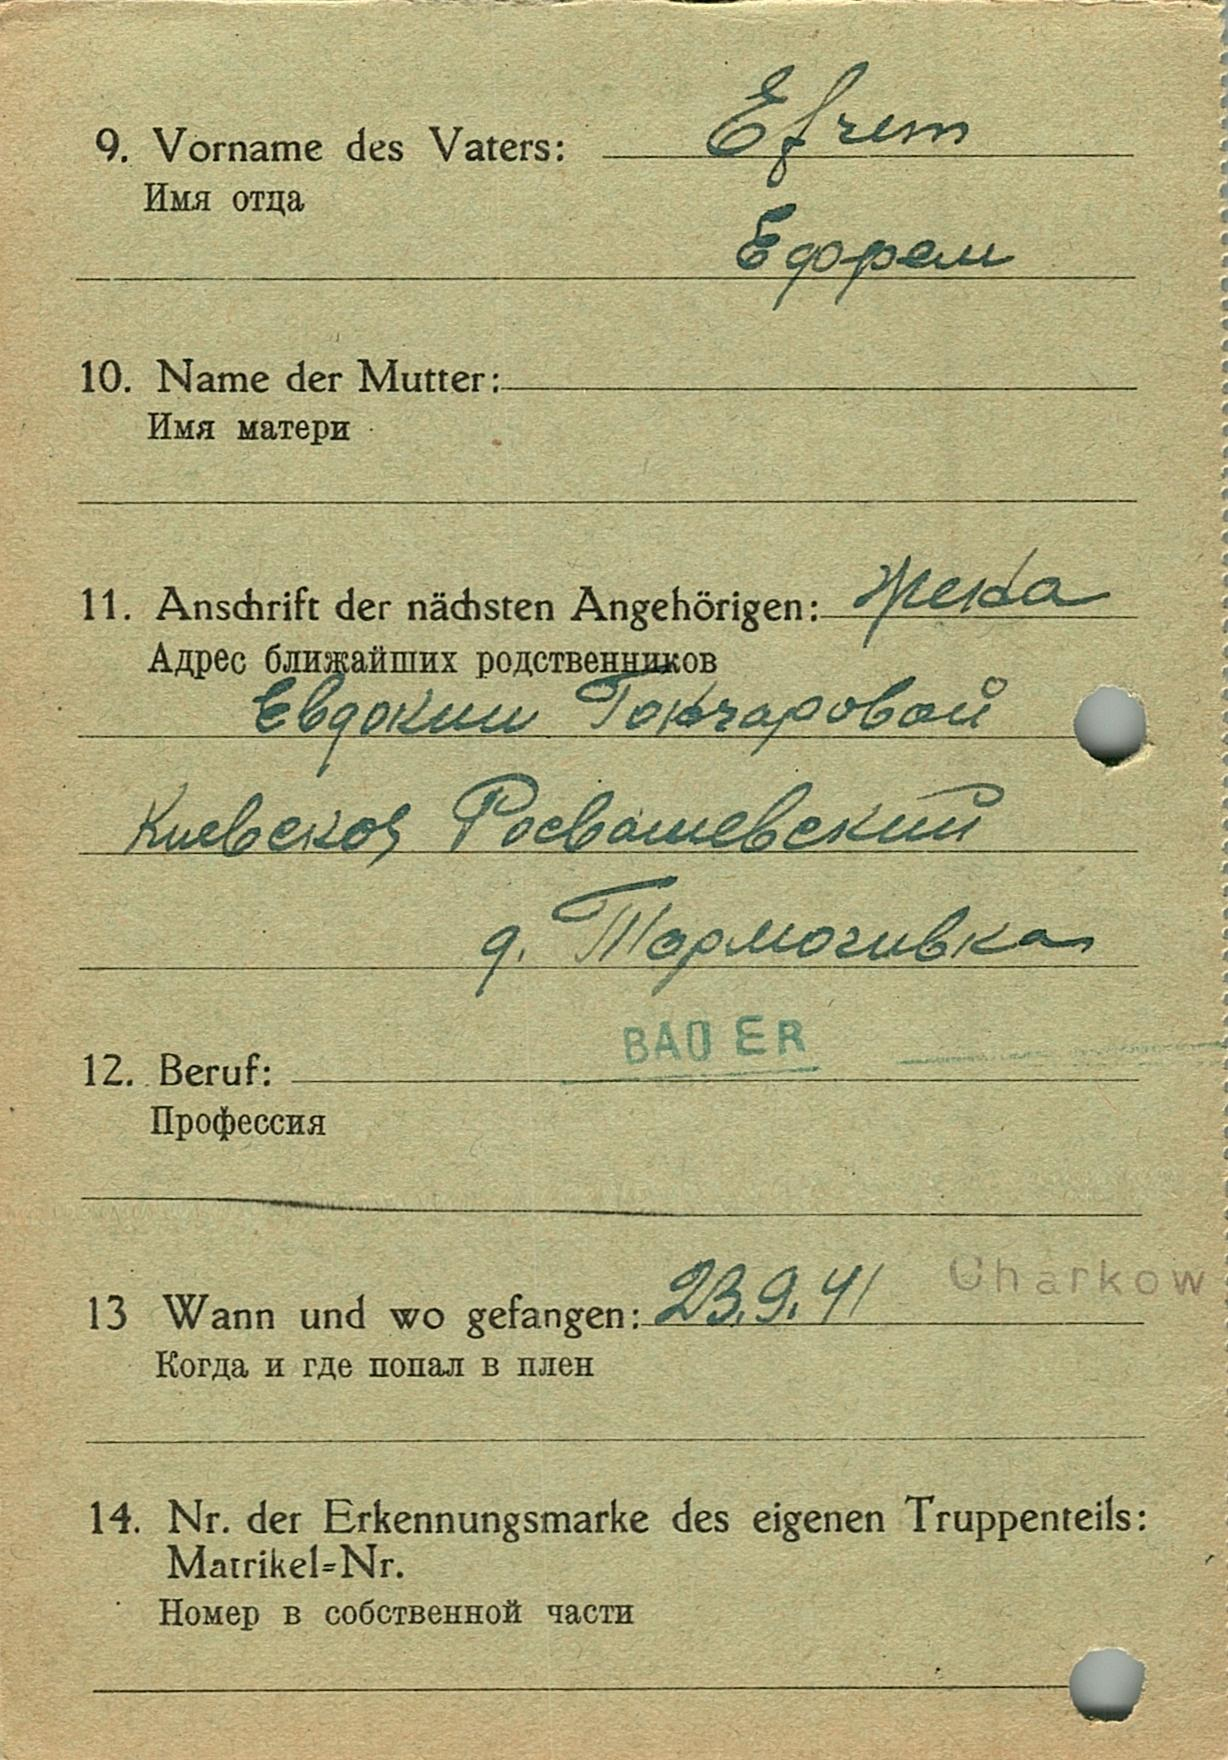 9. Vorname des Vaters: Efrem
Имя отца
Ефрем
10. Name der Mutter:
Имя матери
11. Anschrift der nächsten Angehörigen: жена
Адрес ближайших родственников
Евдокии Гончаровой
Киевской Росвашевский
д. Тормогивка
BAUER
12. Beruf:
Профессия
13 Wann und wo gefangen: 23.9.41 Charkow
Когда и где попал в плен
14. Nr. der Erkennungsmarke des eigenen Truppenteils:
Matrikel=Nr.
Номер в собственной части